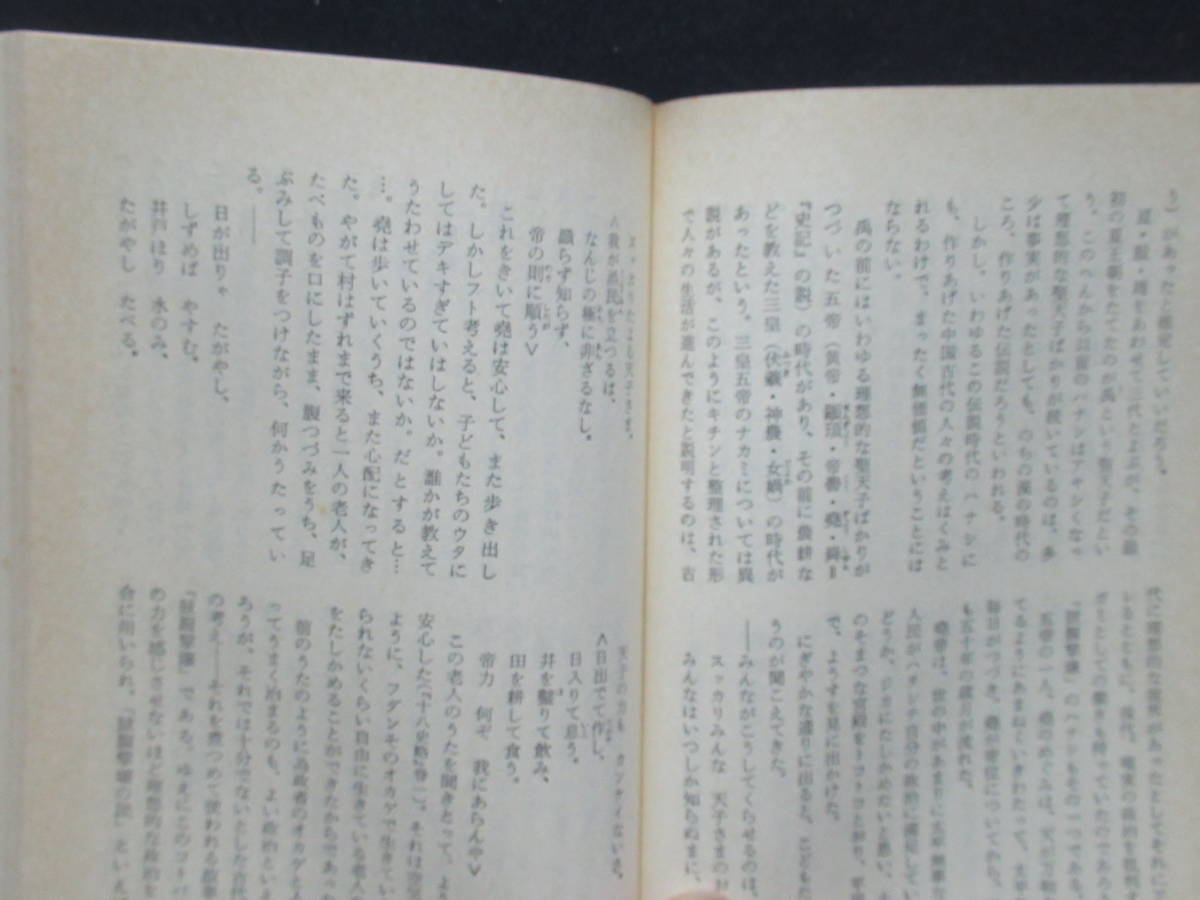 う）があったと推定していいだろう。
夏・殷・周をあわせて三代とよぶが、その最
初の夏王朝をたてたのが禹という聖天子だとい
う。このへんから以前のハナシはアヤシくなっ
て理想的な聖天子ばかりが続いているのは、多
少は事実があったとしても、のちの漢の時代の
ころ、作りあげた伝説だろうといわれる。
しかし、いわゆるこの伝説時代のハナシに
も、作りあげた中国古代の人々の考えはくみと
れるわけで、まったく無価値だということには
ならない。
禹の前にはいわゆる理想的な聖天子ばかりが
つづいた五帝（黄帝・顓頊・帝嚳・堯・舜＝
『史記』の説）の時代があり、その前に農耕な
どを教えた三皇（伏羲・神農・女媧）の時代が
あったという。三皇五帝のナカミについては異
説があるが、このようにキチンと整理された形
で人々の生活が進んできたと説明するのは、古
代に理想的な世界があったとしてそれに
『鼓腹撃壌』のハナシもその一つである。
五帝の一人、堯のめぐみは、天
てるようにあまねくいきわたって、太平
毎日がつづき、堯が帝位についてから、
も五十年の歳月が流れた。
堯帝は、世の中があまりに太平無事な
どうか、ジカにたしかめたいと思い、
のそまつな宮殿をトコトコと出て、平
で、ようすを見に出かけた。
にぎやかな通りに出ると、こどもた
うのが聞こえてきた。
――みんながこうしてくらせるのは、
スッカリみんな 天子さまのお
みんなはいつしか知らぬまに、
スッカリたよる天子さま。
＜我が烝民を立つるは、
なんじの極に非ざるなし。
識らず知らず、
帝の則に順う＞
これをきいて堯は安心して、また歩き出し
た。しかしフト考えると、子どもたちのウタに
してはデキすぎていはしないか。誰かが教えて
うたわせているのではないか。だとすると…
…。堯は歩いていくうち、また心配になってき
た。やがて村はずれまで来ると一人の老人が、
たべものを口にしたまま、腹つづみをうち、足
ぶみして調子をつけながら、何かうたってい
る。――
日が出りゃ たがやし、
しずめば やすむ。
井戸ほり 水のみ、
たがやし たべる。
天子の力も カンケイないさ。
＜日出でて作し、
日入りて息う。
井を鑿りて飲み、
田を耕して食う。
帝力 何ぞ 我にあらんや＞
この老人のうたを聞きとって、よう
安心した（『十八史略』巻一）。それは
ように、フダンそのオカゲで生きてい
られないくらい自由に生きている老人
をたしかめることができたからであっ
前のうたのように為政者のオカゲを
ってうまく治まるのも、よい政治といえ
あろうが、それでは十分でないとした古代
の考え――それを煮つめて
『鼓腹撃壌』である。ゆえにこのコトバ
の力を感じさせないほど理想的な政治を
合に用いられ、『鼓腹撃壌の民』といえ